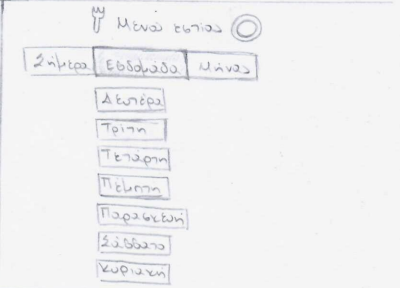 Μενού εστίας
Σήμερα Εβδομάδα Μήνας
Δευτέρα
Τρίτη
Τετάρτη
Πέμπτη
Παρασκευή
Σάββατο
Κυριακή